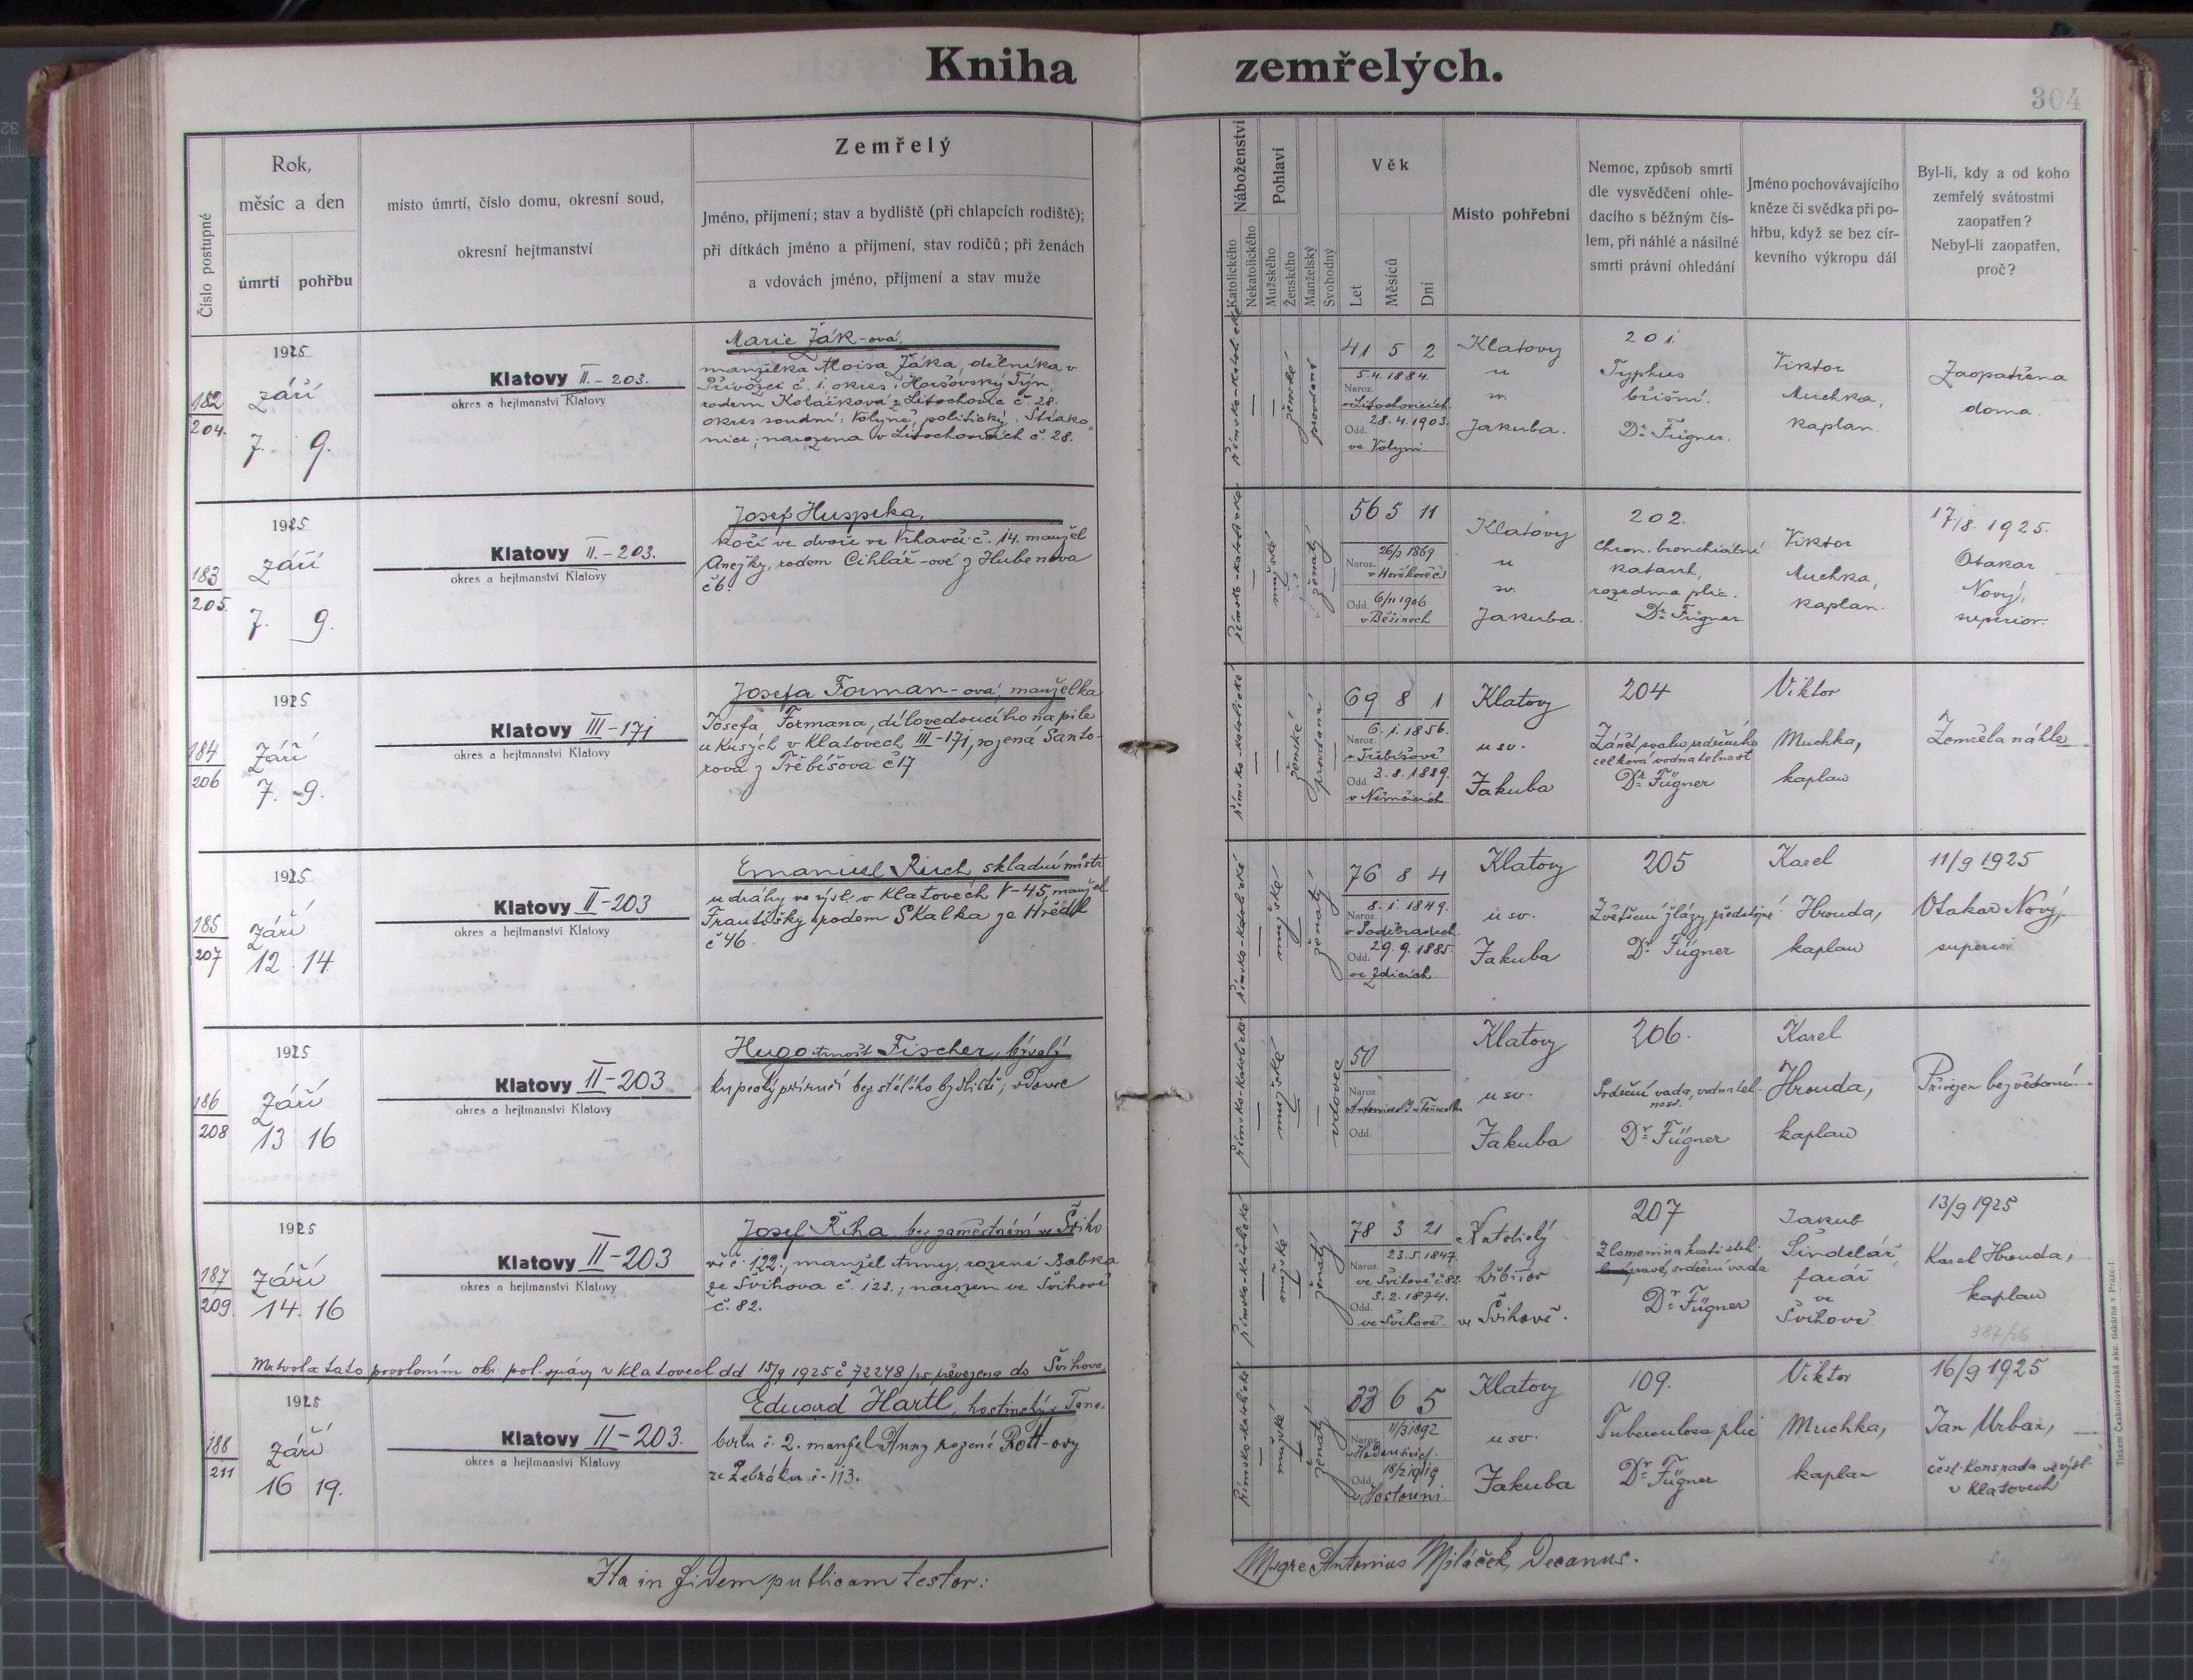 Kniha zemřelých.
304
Číslo postupné
Rok,
měsíc a den
úmrtí pohřbu
místo úmrtí, číslo domu, okresní soud,
okresní hejtmanství
Zemřelý
Jméno, příjmení; stav a bydliště (při chlapcích rodiště);
při dítkách jméno a příjmení, stav rodičů; při ženách
a vdovách jméno, příjmení a stav muže
Náboženství
Katolického
Nekatolického
Pohlaví
Mužského
Ženského
Manželský
Svobodný
Věk
Let
Měsíců
Dní
Místo pohřební
Nemoc, způsob smrti
dle vysvědčení ohle-
dacího s běžným čís-
lem, při náhlé a násilné
smrti právní ohledání
Jméno pochovávajícího
kněze či svědka při po-
hřbu, když se bez cír-
kevního výkropu dál
Byl-li, kdy a od koho
zemřelý svátostmi
zaopatřen?
Nebyl-li zaopatřen,
proč?
182
204.
1925
září
7. 9.
Klatovy II. - 203.
okres a hejtmanství Klatovy
Marie Žák-ová,
manželka Aloisa Žáka, dělníka v
Přívozci č. 1. okres: Horšovský Týn,
rodem Koláčková z Litochovic č. 28.
okres soudní: Volyně, politický: Strako-
nice; narozena v Litochovicích č. 28.
římsko-katolické
ženské
provdaná
41 5 2
5.4.1884.
Naroz.
v Litochovicích.
28.4.1903.
Odd.
ve Volyni
Klatovy
u
sv.
Jakuba.
201.
Typhus
břišní.
Dr. Fügner.
Viktor
Muchka,
kaplan.
Zaopatřena
doma.
183
205.
1925
září
7. 9.
Klatovy II. - 203.
okres a hejtmanství Klatovy
Josef Huspeka,
kočí ve dvoře ve Vrhavči č. 14. manžel
Anežky, rodem Cihlář-ové z Hubenova
č 6.
římsko-katolické
mužské
ženatý
56 5 11
26/3 1869
Naroz.
6/11 1906
Odd.
v Běšinech
Klatovy
u
sv.
Jakuba.
202.
Chron. bronchiální
katarrh,
rozedma plic.
Dr. Fügner
Viktor
Muchka,
kaplan.
17/8. 1925.
Otakar
Nový,
superior.
184
206
1925
Září
7. 9.
Klatovy III-171
okres a hejtmanství Klatovy
Josefa Forman-ová, manželka
Josefa Formana, dílovedoucího na pile
u Kusých v Klatovech III-171, rozená Santo-
rová z Třebíšova č 17
římsko-katolické
ženské
provdaná
69 8 1
6. 1. 1856.
Naroz.
v Třebíšově
3. 8. 1889.
Odd.
v Němčicích
Klatovy
u sv.
Jakuba
204
Zánět svalu srdečního
celková vodnatelnost
Dr. Fügner
Viktor
Muchka,
kaplan
Zemřela náhle
185
207
1925
Září
12. 14.
Klatovy II-203
okres a hejtmanství Klatovy
Emanuel Rirch, skladní mistr
u dráhy ve výsl. v Klatovech V-45, manžel
Františky rodem Skalka ze Hředl
č 46.
římsko-katolické
mužské
ženatý
76 8 4
8. 1. 1849.
Naroz.
v Poděbradech.
29. 9. 1885.
Odd.
ve Zdicích
Klatovy
u sv.
Jakuba
205
Zvětšení žlázy předstojné
Dr. Fügner
Karel
Hrouda,
kaplan
11/9 1925
Otakar Nový,
superior
186
208
1925
Září
13 16
Klatovy II-203
okres a hejtmanství Klatovy
Hugo Arnošt Fischer, bývalý
kupecký příručí bez stálého bydliště, vdovec
římsko-katolické
mužské
vdovec
50
Naroz.
Odd.
Klatovy
u sv.
Jakuba
206.
Srdeční vada, vodnatel-
nost.
Dr. Fügner
Karel
Hrouda,
kaplan
Přivezen bez vědomí
187
209.
1925
Září
14. 16
Klatovy II-203
okres a hejtmanství Klatovy
Josef Říha, bez zaměstnání ve Šviho
vě č. 122., manžel Anny, rozené Bobka
ze Švihova č. 123.; narozen ve Švihově
č. 82.
římsko-katolické
mužské
ženatý
78 3 21
23. 5. 1847.
Naroz.
ve Švihově č 82.
3. 2. 1874.
Odd.
ve Švihově
Katolický
hřbitov
ve Švihově.
207
Zlomenina kosti steh.
pravé, srdeční vada
Dr. Fügner
Jakub
Šindelář,
farář
ve
Švihově
13/9 1925
Karel Hrouda,
kaplan
387/26
Mrtvola tato povolením okr. pol. správy v Klatovech dd 15/9 1925 č 72248/25 převezena do Švihova.
188
211
1925
Září
16 19.
Klatovy II-203.
okres a hejtmanství Klatovy
Eduard Hartl, hostinský z Tane-
č. 2. manžel Anny rozené Rott-ovy
ze Žebráku č-113.
římsko-katolické
mužské
ženatý
33 6 5
11/3 1892
Naroz.
18/2 1919
Odd.
v Hostouni.
Klatovy
u sv.
Jakuba
109.
Tuberculosa plic
Dr. Fügner
Viktor
Muchka,
kaplan
16/9 1925
Jan Urban,
čest. kons. rada ve výsl.
v Klatovech
Ita in fidem publicam testor:
Msgre Antonius Miláček, Decanus.
Tiskem Československé akc. tiskárny v Praze-I